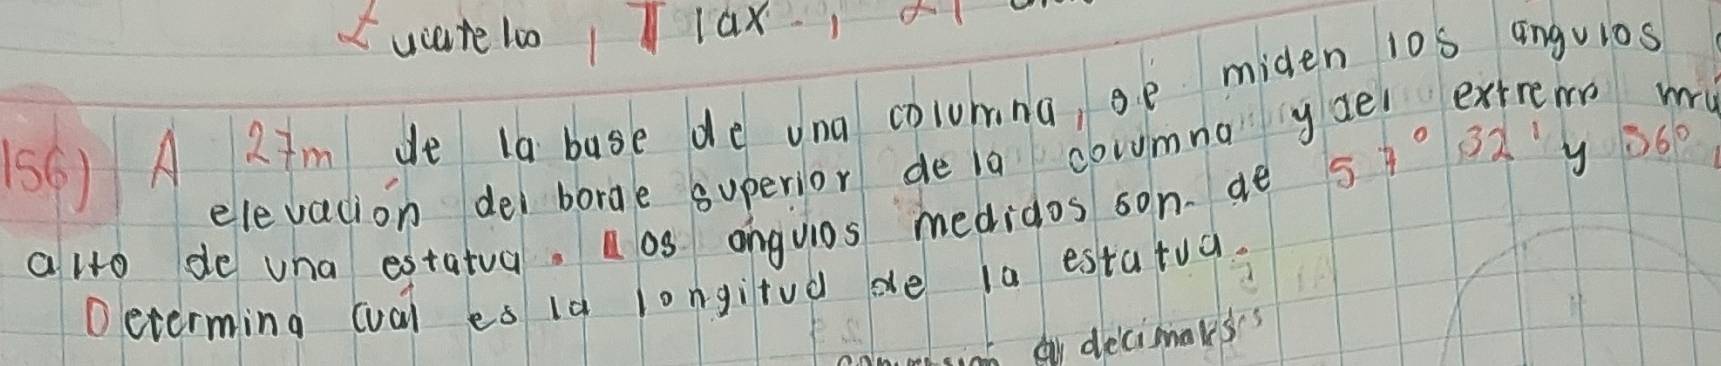 156) A 27m de la base de una columna, se miden los angulos
elevación del borde superior de la columna y del extremo
alto de una estatua. Los angulos medidos son de 57° 32' y 36°
Determina cuál es la longitud de la estatua.
a decimales